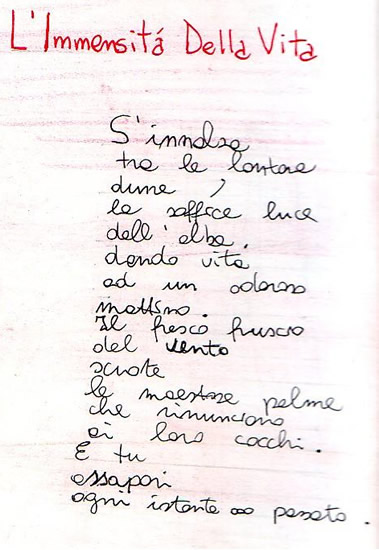 L'Immensitá Della Vita
S'innalza
tra le lontane
dune,
la soffice luce
dell'alba.
dando vita
ad un odoroso
mattino.
Il fresco fruscio
del vento
scuote
le maestose palme
che rinunciano
ai loro cocchi.
E tu
assapori
ogni istante passato.